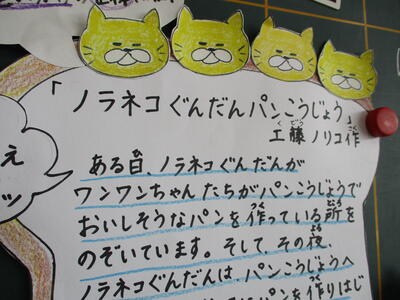 「ノラネコぐんだんパンこうじょう」
工藤 ノリコ作
ある日、ノラネコぐんだんが
ワンワンちゃんたちがパンこうじょうで
おいしそうなパンを作っている所を
のぞいています。そして、その夜、
ノラネコぐんだんは、パンこうじょうへ
パンを作りはじ
え
ッ